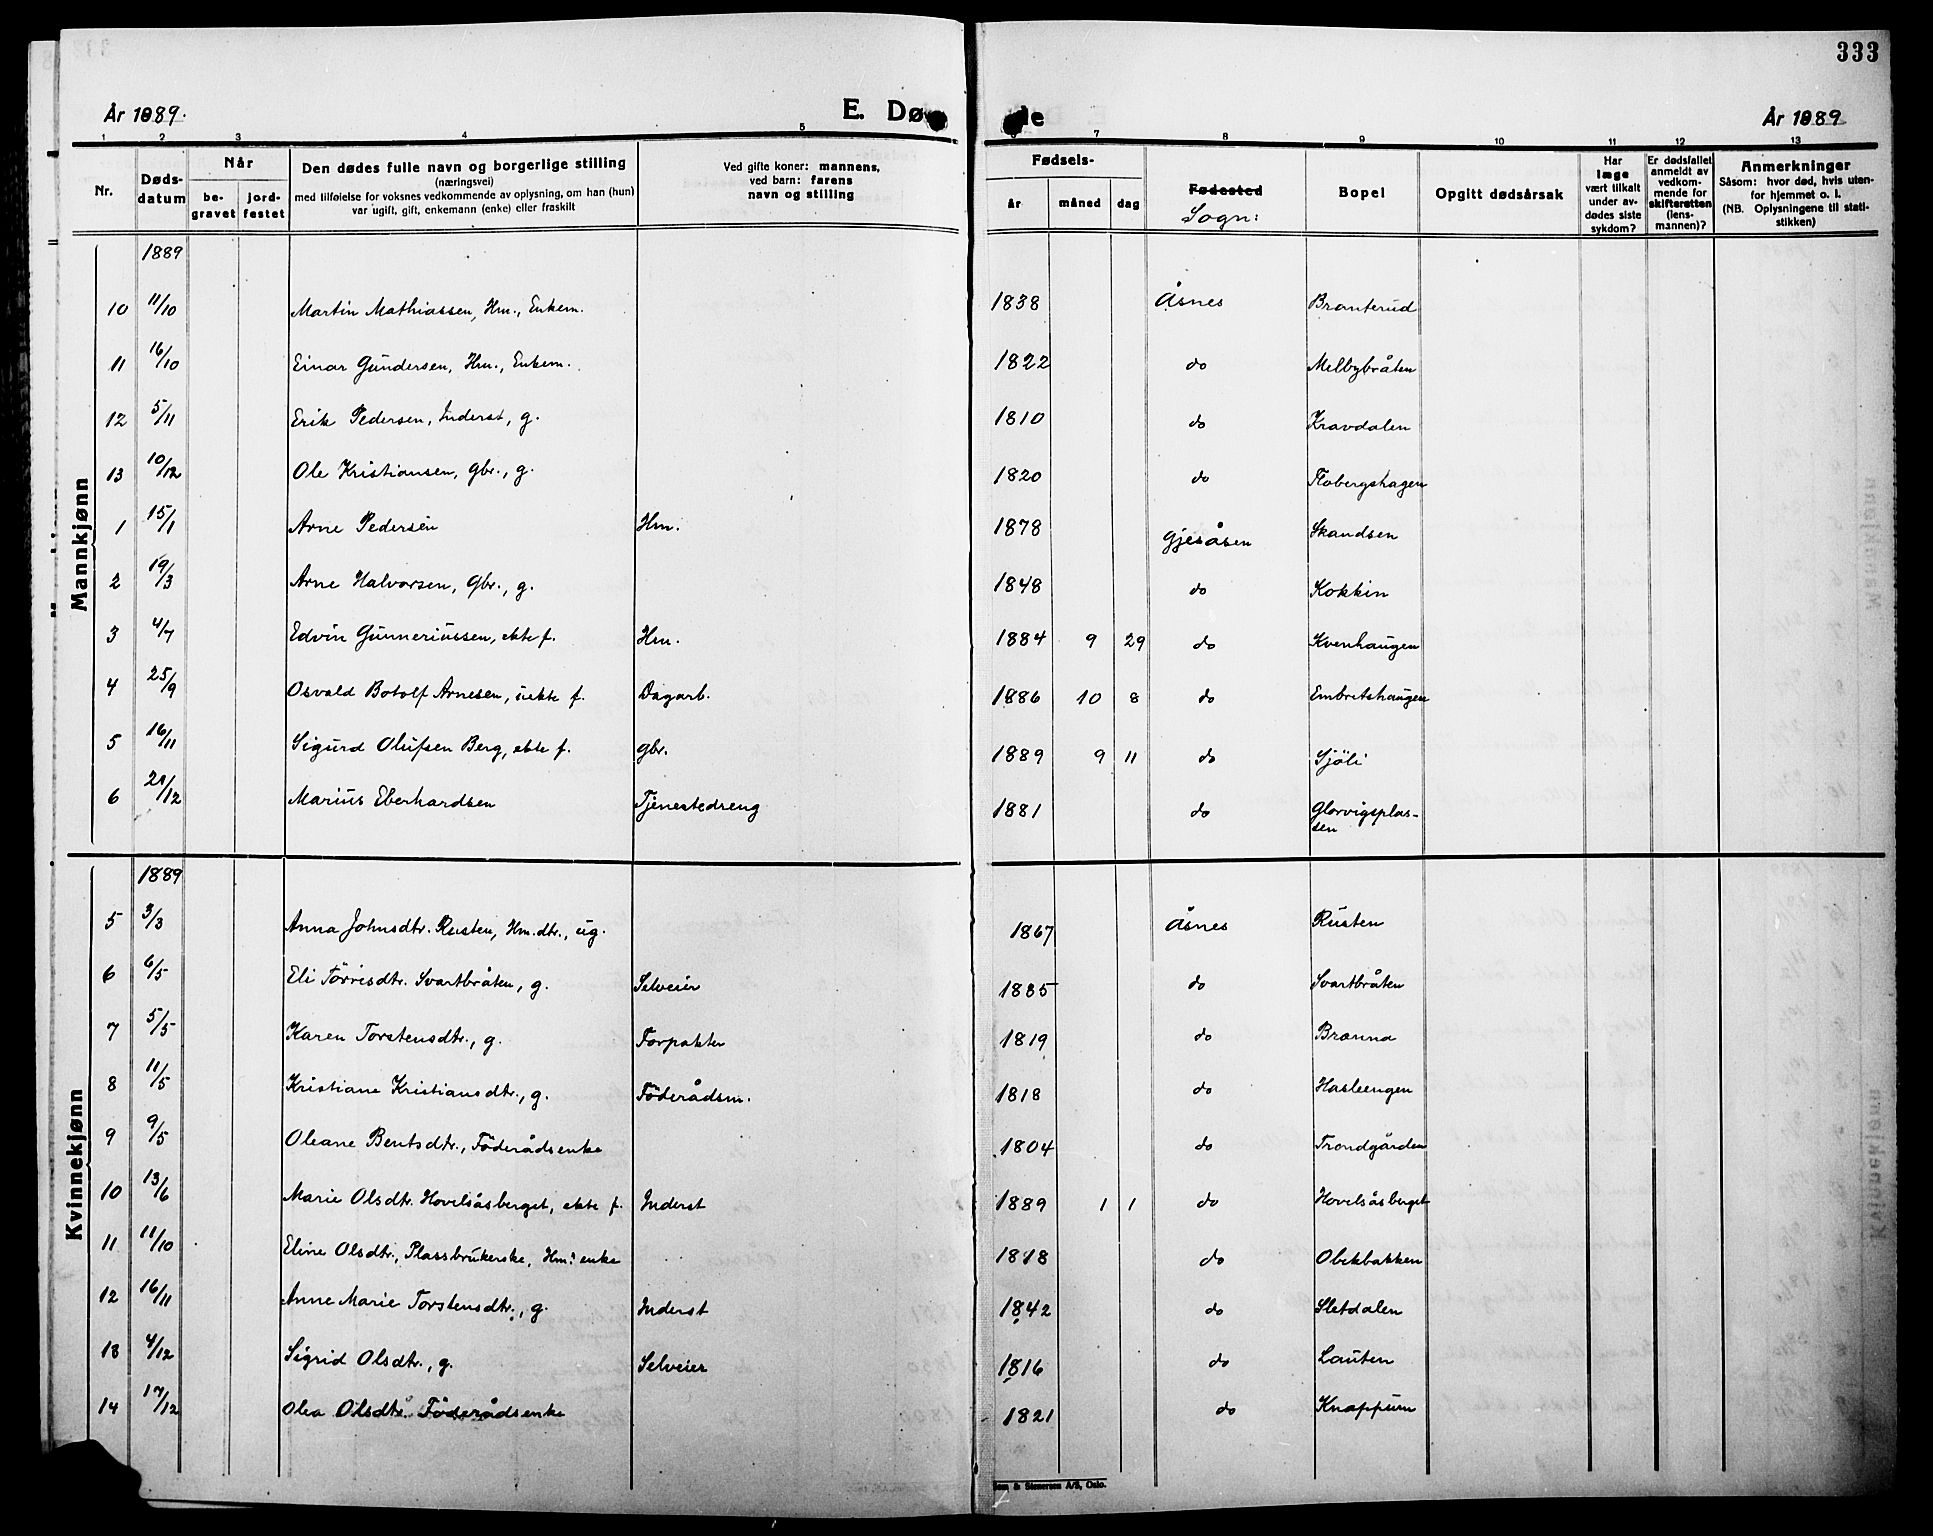 333
År 1889.
E. Dø
de
År 1889
1 2 3 4 5 7 8 9 10 11 12 13
Nr.
Døds-
datum
Når
be-
gravet
jord-
festet
Den dødes fulle navn og borgerlige stilling
(næringsvei)
med tilføielse for voksnes vedkommende av oplysning, om han (hun)
var ugift, gift, enkemann (enke) eller fraskilt
Ved gifte koner: mannens,
ved barn: farens
navn og stilling
Fødsels-
år måned dag
Fødested
Sogn:
Bopel
Opgitt dødsårsak
Har
læge
vært tilkalt
under av-
dødes siste
sykdom?
Er dødsfallet
anmeldt av
vedkom-
mende for
skifteretten
(lens-
mannen)?
Anmerkninger
Såsom: hvor død, hvis uten-
for hjemmet o. l.
(NB. Oplysningene til stati-
stikken)
Mannkjønn
1889
10 11/10 Martin Mathiassen, Hm., Enkem. 1838 Åsnes Branterud
11 16/10 Einar Gundersen, Hm., Enkem. 1822 do Melbybråten
12 5/11 Erik Pedersen, Inderst, g. 1810 do Kravdalen
13 10/12 Ole Kristiansen, Gbr., g. 1820 do Flobergshagen
1 15/1 Arne Pedersen Hm. 1878 Gjesåsen Skandsen
2 19/3 Arne Halvorsen, Gbr., g. 1848 do Kokkin
3 4/7 Edvin Gunneriussen, ekte f. Hm. 1884 9 29 do Kvenhaugen
4 25/9 Osvald Botolf Arnesen, uekte f. Dagarb. 1886 10 8 do Embretshaugen
5 16/11 Sigurd Olufsen Berg, ekte f. gbr. 1889 9 11 do Sjöli
6 21/12 Marius Eberhardsen Tjenestedreng 1881 do Glorvigsplas-
sen
Kvinnekjønn
1889
5 3/3 Anna Johnsdtr. Rusten, Hm.dtr., ug. 1867 Åsnes Rusten
6 6/5 Eli Törrisdtr. Svartbråten, g. Selveier 1835 do Svartbråten
7 5/5 Karen Torstensdtr., g. Forpakter 1819 do Brænna
8 11/5 Kristiane Kristiansdtr., g. Föderådsm. 1818 do Hasleengen
9 9/5 Oleane Bentsdtr., Föderådsenke 1804 do Trondgården
10 13/6 Marie Olsdtr. Hovelsåsberget, ekte f. Inderst 1889 1 1 do Hovelsåsberget
11 11/10 Eline Olsdtr., Plassbrukerske, Hm: enke 1818 do Obekbakken
12 16/11 Anne Marie Torstensdtr., g. Inderst 1842 do Sletdalen
13 4/12 Sigrid Olsdtr., g. Selveier 1816 do Lauten
14 17/12 Olea Olsdtr. Föderådsenke 1821 do Knappum
Sem & Stenersen A/S, Oslo.